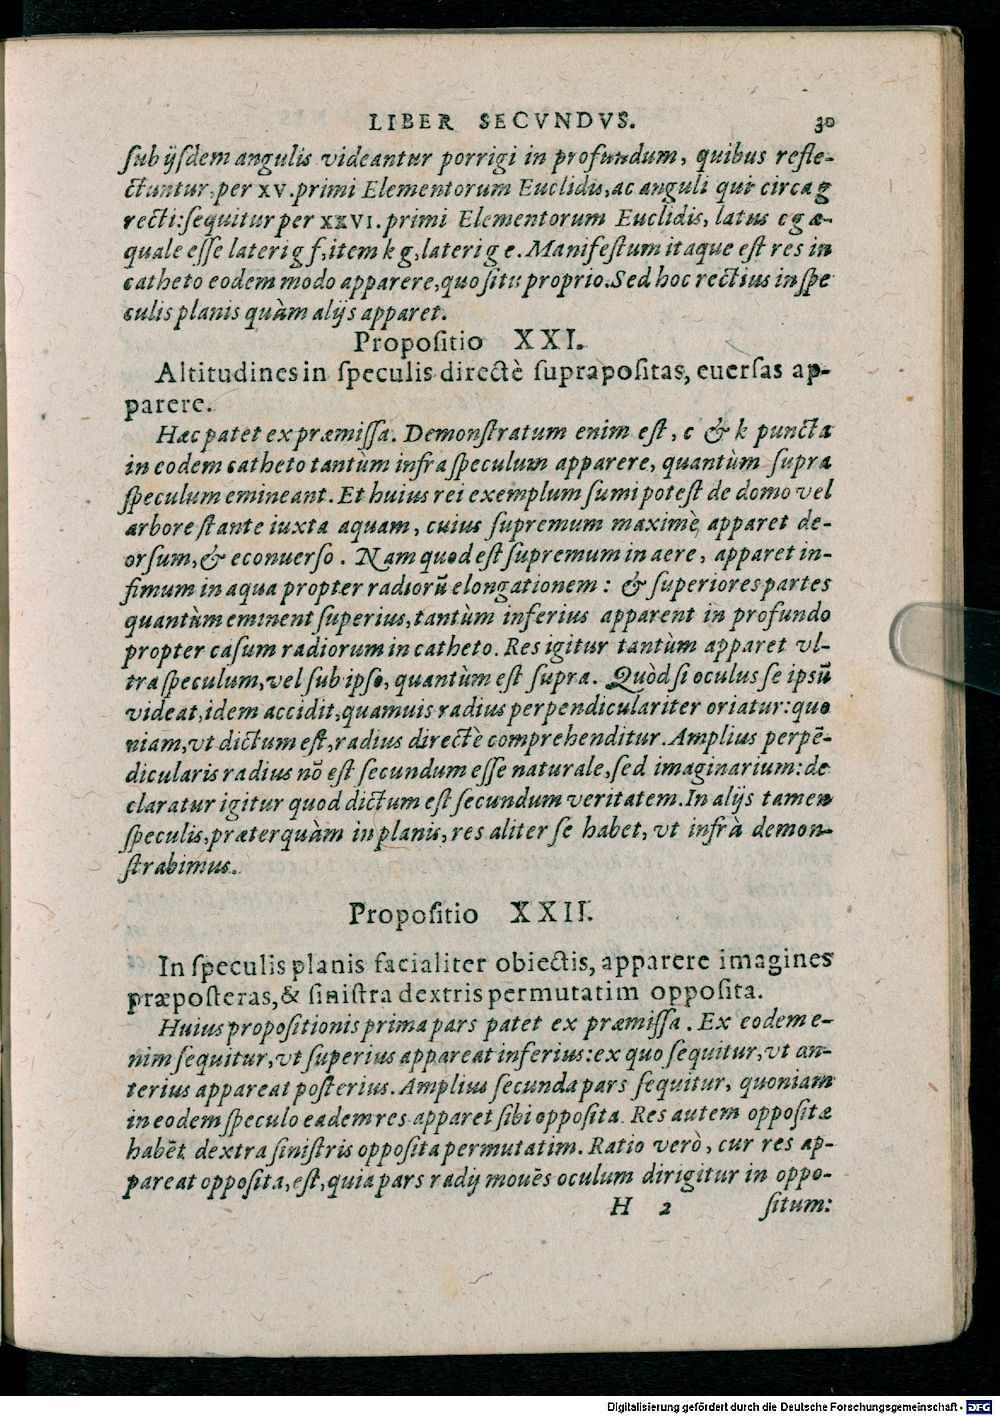 LIBER SECVNDVS. 30
sub ijsdem angulis videantur porrigi in profundum, quibus refle-
ctuntur, per XV. primi Elementorum Euclidis, ac anguli qui circa g
recti: sequitur per XXVI. primi Elementorum Euclidis, latus c g æ-
quale esse lateri g f, item k g, lateri g e. Manifestum itaque est res in
catheto eodem modo apparere, quo situ proprio. Sed hoc rectius in spe
culis planis quàm alijs apparet.
Propositio XXI.
Altitudines in speculis directè suprapositas, euersas ap-
parere.
Hæc patet ex præmissa. Demonstratum enim est, c & k puncta
in eodem catheto tantùm infra speculum apparere, quantùm supra
speculum emineant. Et huius rei exemplum sumi potest de domo vel
arbore stante iuxta aquam, cuius supremum maximè apparet de-
orsum, & econuerso. Nam quod est supremum in aere, apparet in-
fimum in aqua propter radiorū elongationem: & superiores partes
quantùm eminent superius, tantùm inferius apparent in profundo
propter casum radiorum in catheto. Res igitur tantùm apparet vl-
tra speculum, vel sub ipso, quantùm est supra. Quòd si oculus se ipsū
videat, idem accidit, quamuis radius perpendiculariter oriatur: quo
niam, vt dictum est, radius directè comprehenditur. Amplius perpē-
dicularis radius nō est secundum esse naturale, sed imaginarium: de
claratur igitur quod dictum est secundum veritatem. In alijs tamen
speculis, præterquàm in planis, res aliter se habet, vt infrà demon-
strabimus.
Propositio XXII.
In speculis planis facialiter obiectis, apparere imagines
præposteras, & sinistra dextris permutatim opposita.
Huius propositionis prima pars patet ex præmissa. Ex eodem e-
nim sequitur, vt superius appareat inferius: ex quo sequitur, vt an-
terius appareat posterius. Amplius secunda pars sequitur, quoniam
in eodem speculo eadem res apparet sibi opposita. Res autem oppositæ
habēt dextra sinistris opposita permutatim. Ratio verò, cur res ap-
pareat opposita, est, quia pars radij mouēs oculum dirigitur in oppo-
H 2 situm:
Digitalisierung gefördert durch die Deutsche Forschungsgemeinschaft - DFG